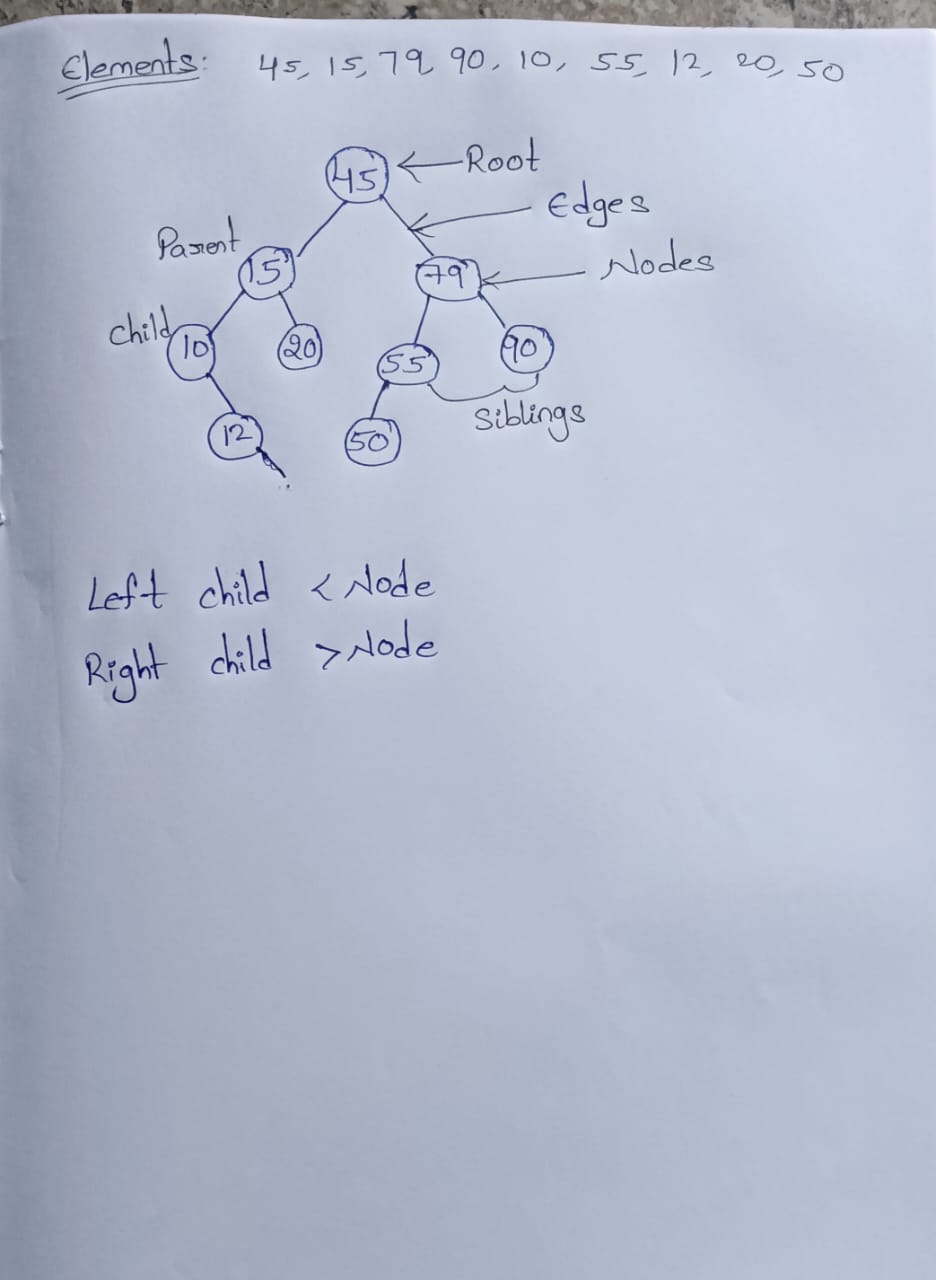 Elements: 45, 15, 79, 90, 10, 55, 12, 20, 50
45 Root
Edges
Parent 15 79 Nodes
Child 10 20 55 90
12 50 Siblings
Left child < Node
Right child > Node